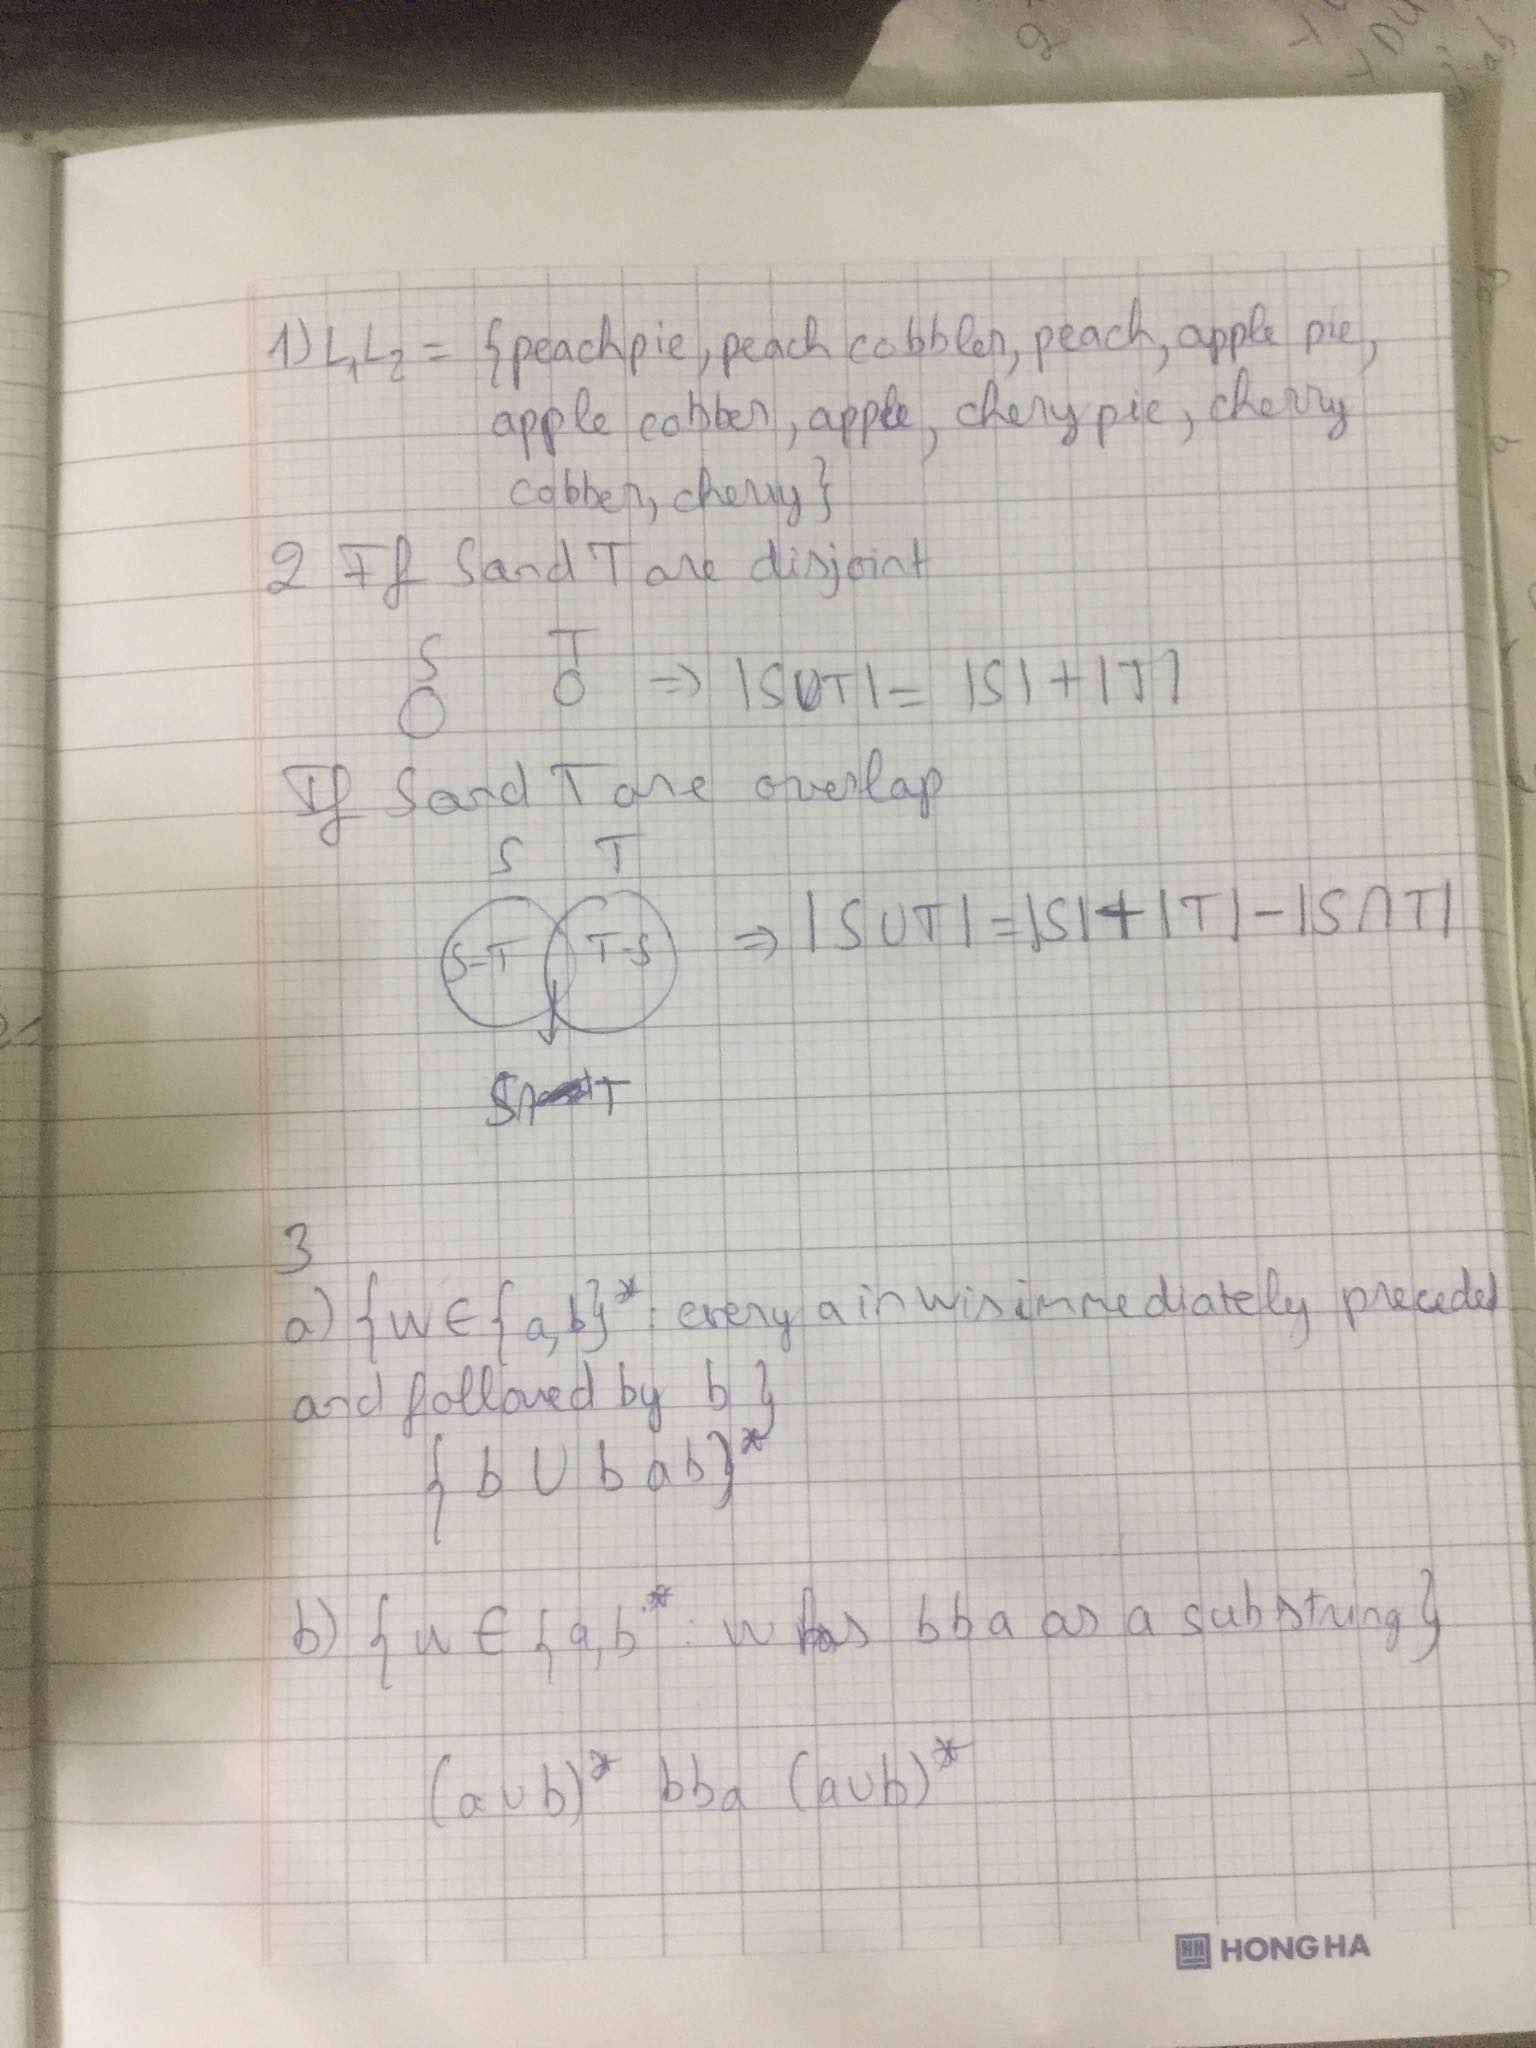 1) L₁L₂ = {peach pie, peach cobbler, peach, apple pie,
apple cobber, apple, chery pie, cherry
cobber, cherry}
2 If S and T are disjoint
S T
⇒ |S∪T| = |S| + |T|
If S and T are overlap
S T
S-T T-S ⇒ |S∪T| = |S| + |T| - |S∩T|
S∩T
3
a) {w ∈ {a,b}* : every a in w is immediately preceded
and followed by b}
{b ∪ bab}*
b) {w ∈ {a,b* : w has bba as a substring}
(a∪b)* bba (a∪b)*
HONG HA